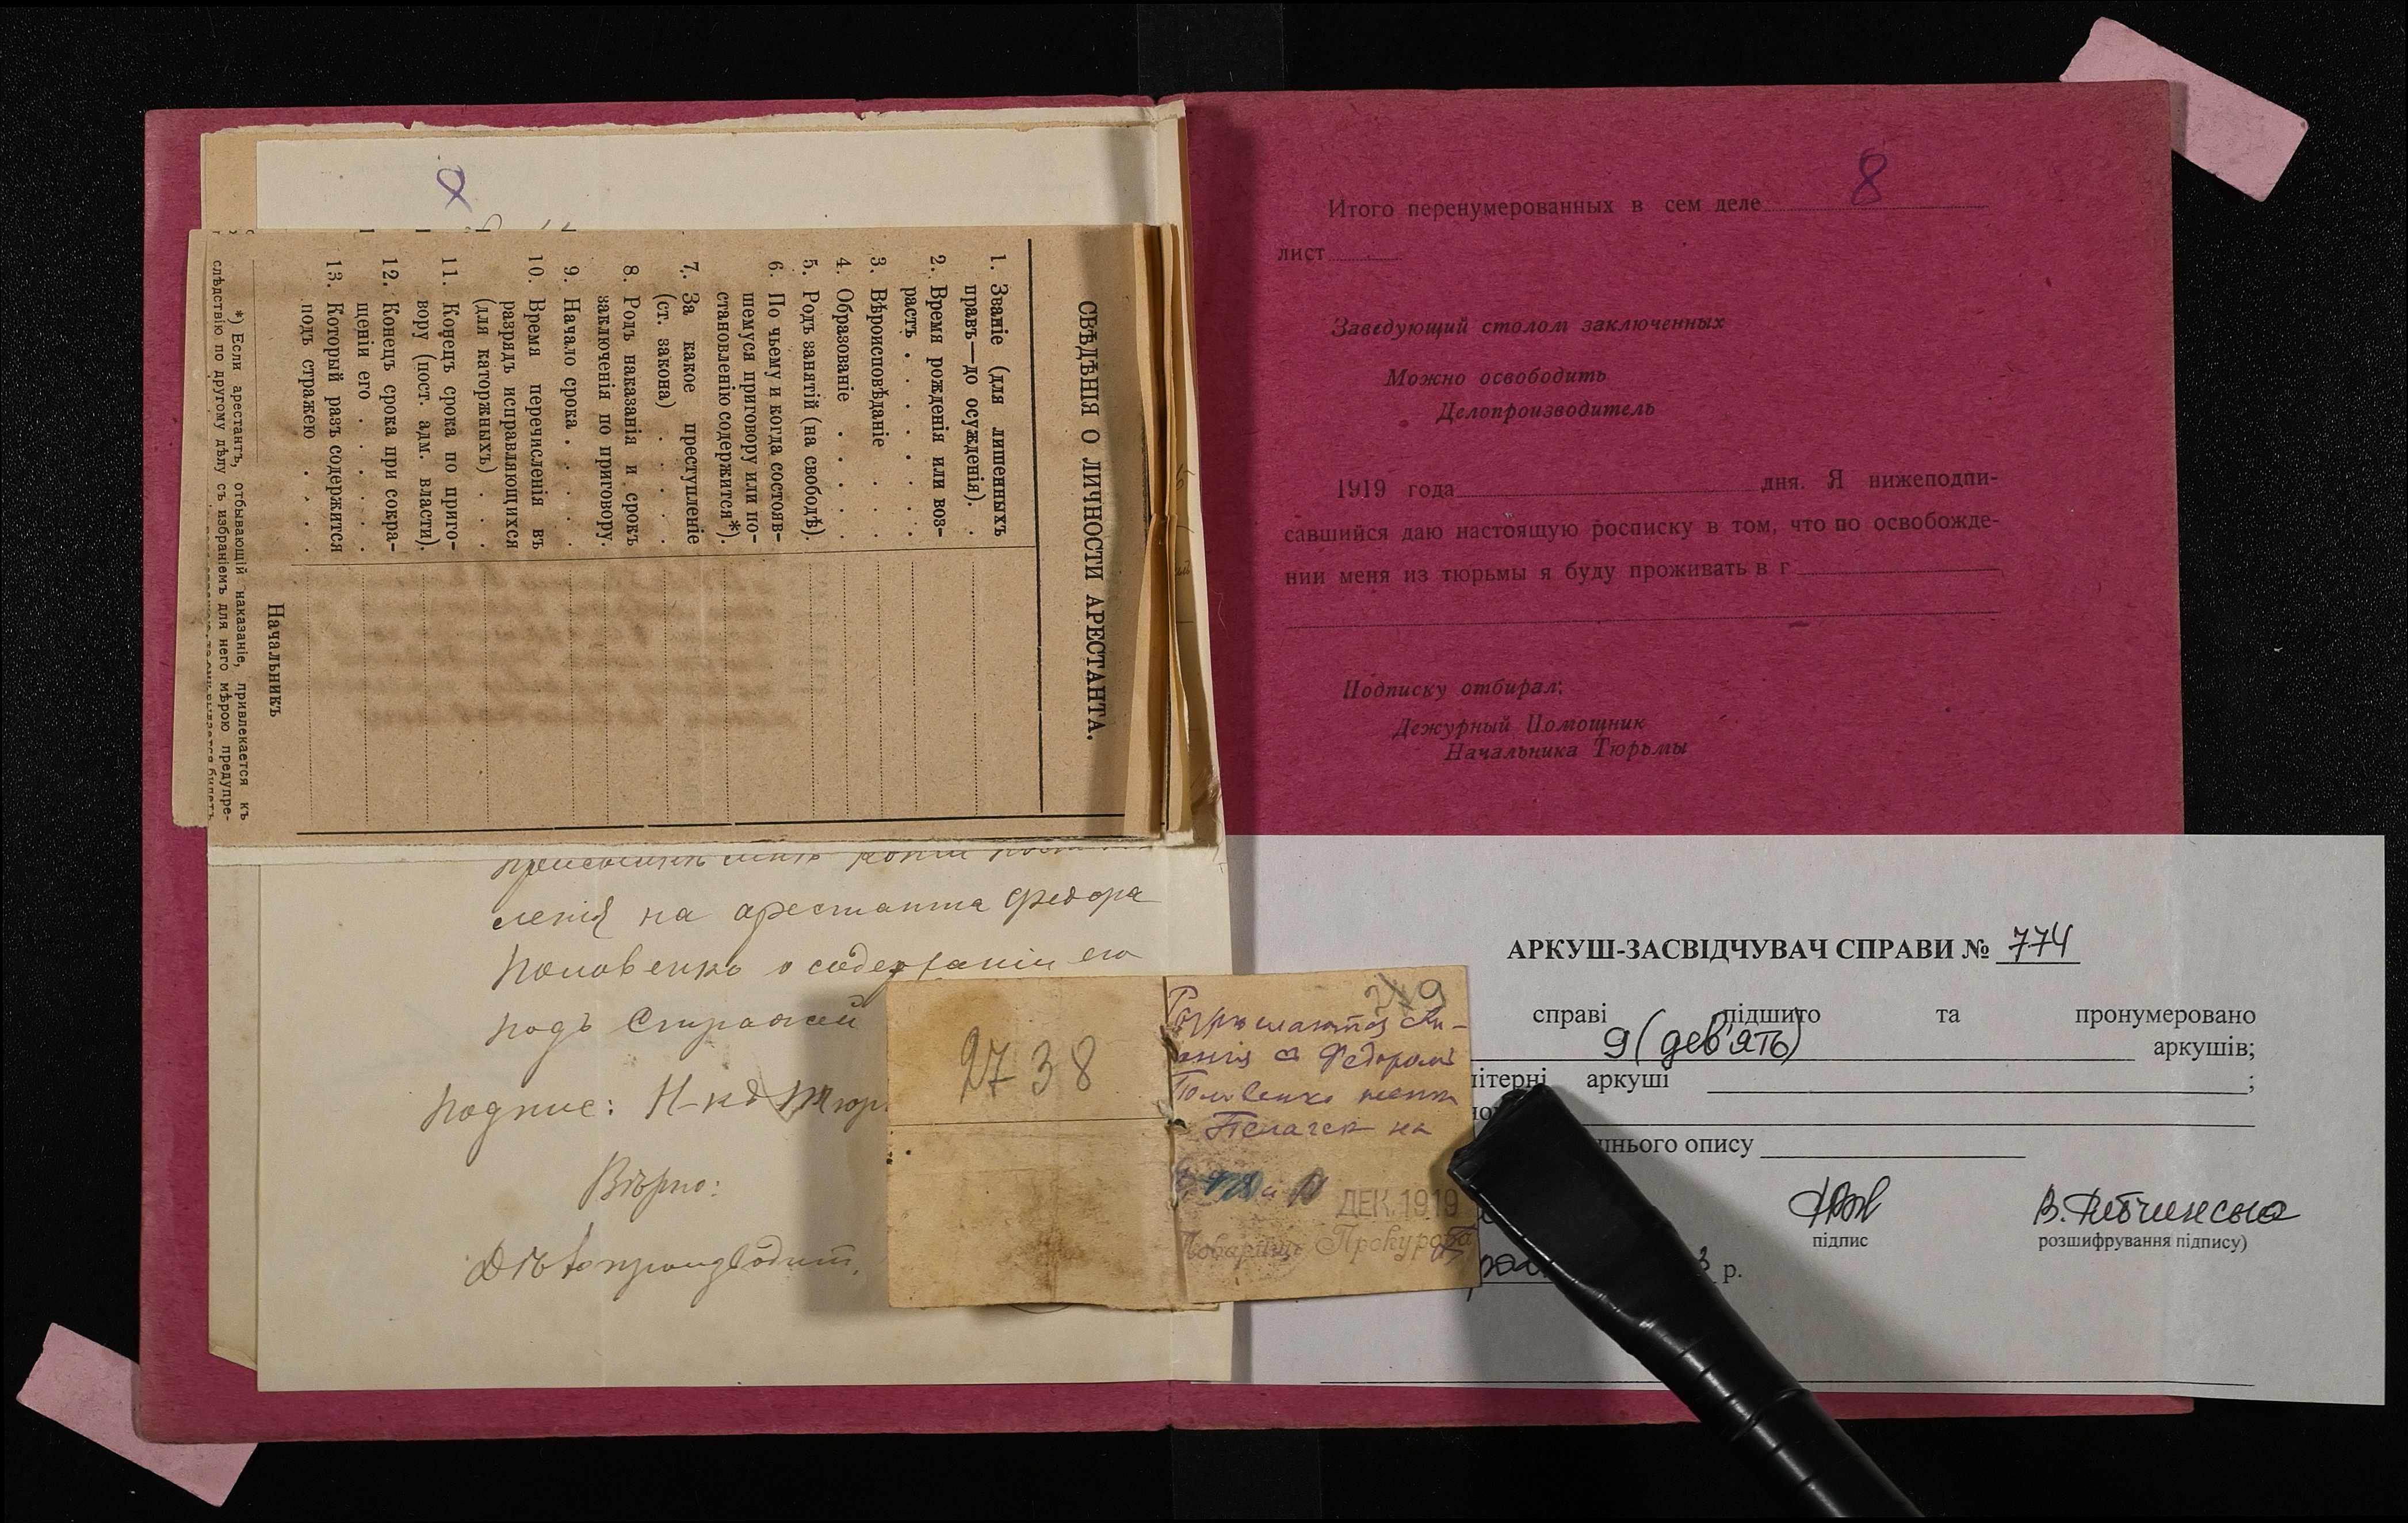 8
СВѢДѢНІЯ О ЛИЧНОСТИ АРЕСТАНТА.
1. Званіе (для лишенныхъ
правъ—до осужденія). .
2. Время рожденія или воз-
растъ . . . . . .
3. Вѣроисповѣданіе . .
4. Образованіе . . . .
5. Родъ занятій (на свободѣ).
6. По чьему и когда состояв-
шемуся приговору или по-
становленію содержится*).
7. За какое преступленіе
(ст. закона) . . . .
8. Родъ наказанія и срокъ
заключенія по приговору.
9. Начало срока . . . .
10. Время перечисленія въ
разрядъ исправляющихся
(для каторжныхъ) . . .
11. Конецъ срока по приго-
вору (пост. адм. власти).
12. Конецъ срока при сокра-
щеніи его . . . . .
13. Который разъ содержится
подъ стражею . . . .
Начальникъ
*) Если арестантъ, отбывающій наказаніе, привлекается къ
слѣдствію по другому дѣлу съ избраніемъ для него мѣрою предупре-
на арестанта Федора
о содержаніи его
подъ Стражей
Подпис: Н-къ Тюр
Вѣрно:
Дѣлопроизводит.
2738
9
Федоромъ
на
ДЕК. 1919
Товарищъ Прокурора
Итого перенумерованных в сем деле 8
лист
Заведующий столом заключенных
Можно освободить
Делопроизводитель
1919 года дня. Я нижеподпи-
савшийся даю настоящую росписку в том, что по освобожде-
нии меня из тюрьмы я буду проживать в г
Подписку отбирал:
Дежурный Помощник
Начальника Тюрьмы
АРКУШ-ЗАСВІДЧУВАЧ СПРАВИ № 774
справі підшито та пронумеровано
9 (дев'ять) аркушів;
ітерні аркуші ;
нього опису
підпис
розшифрування підпису)
р.